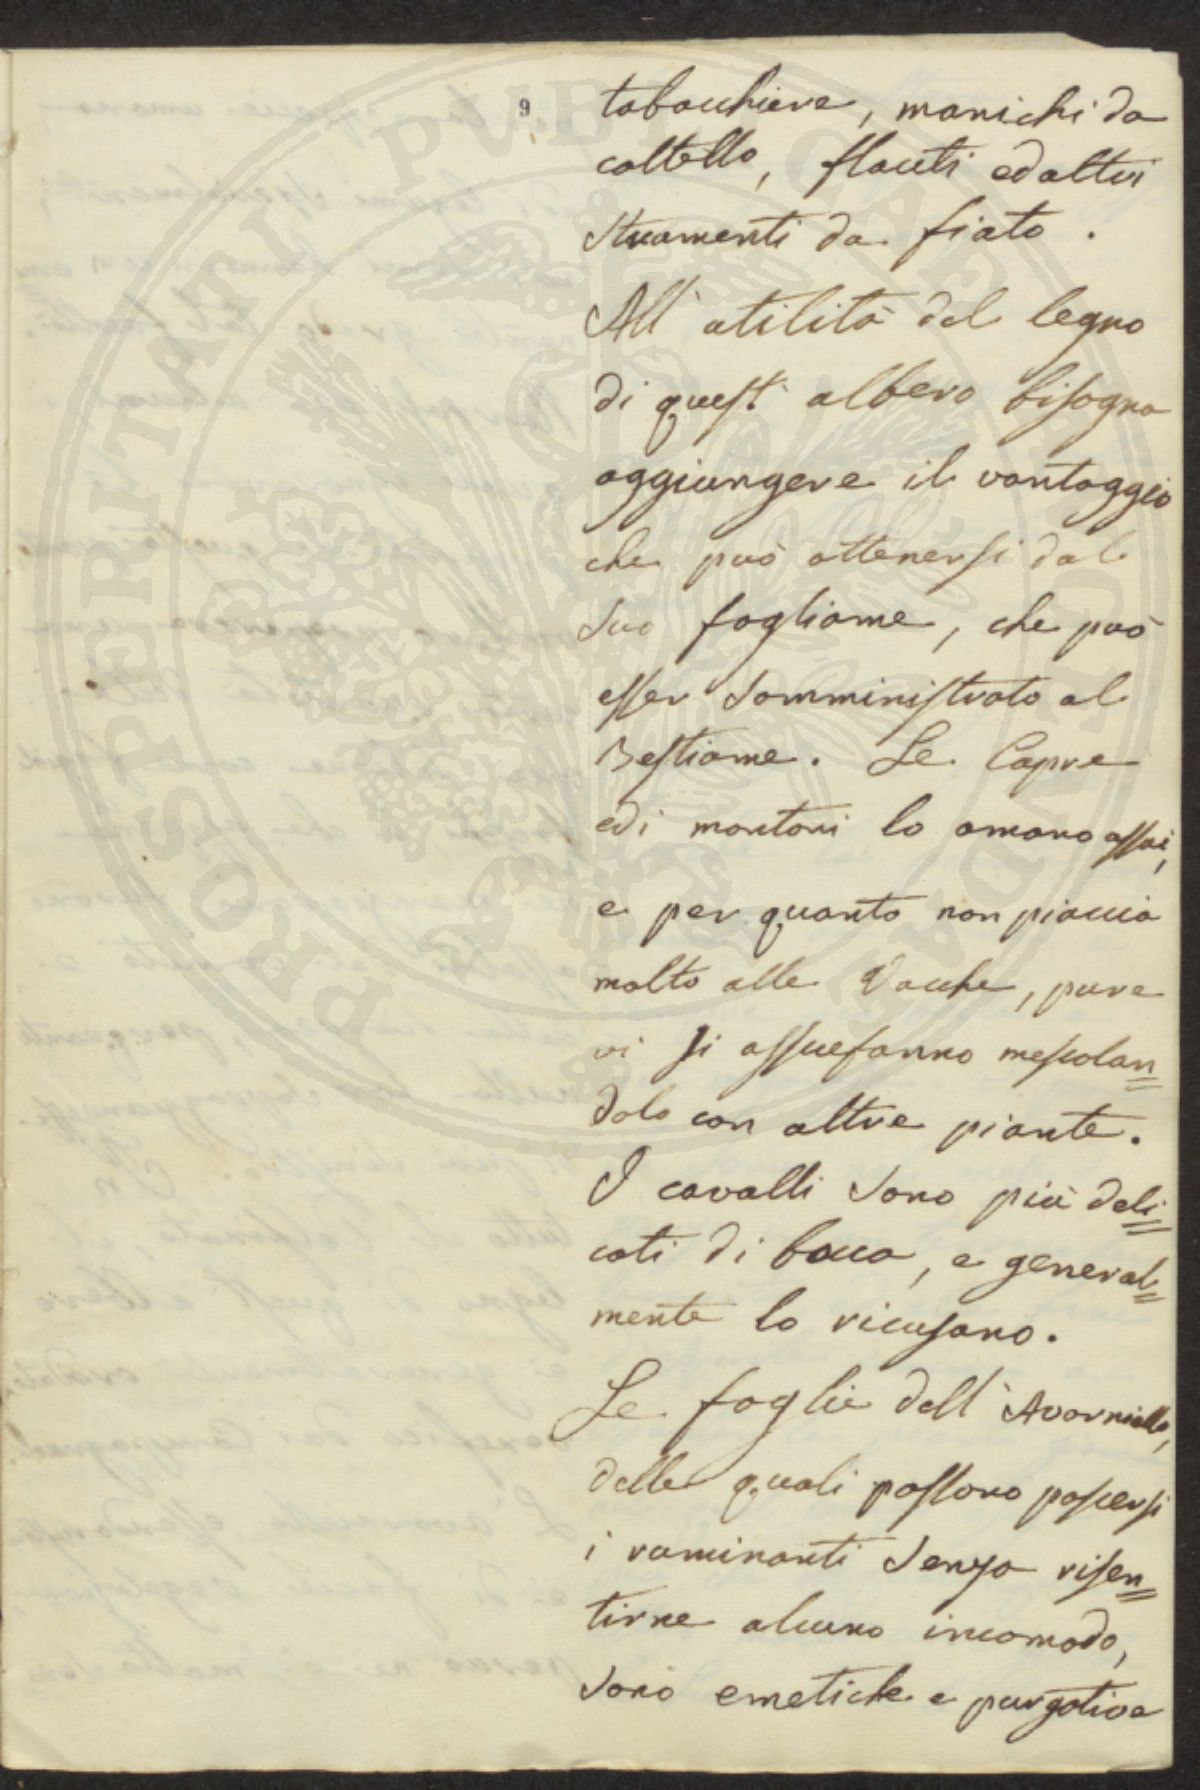 9
tabacchiere, manichi da
coltello, flauti ed altri
strumenti da fiato.
All' utilità del legno
di quest' albero bisogna
aggiungere il vantaggio
che può ottenersi dal
suo fogliame, che può
esser somministrato al
Bestiame. Le Capre
ed i montoni lo amano assai,
e per quanto non piaccia
molto alle Vacche, pure
vi si assuefanno mescolan=
dolo con altre piante.
I cavalli sono più deli=
cati di bocca, e general=
mente lo ricusano.
Le foglie dell' Avorniello,
delle quali possono pascersi
i ruminanti senza risen=
tirne alcuno incomodo,
sono emetiche e purgative
PROSPERITATI PUBLICAE AUGENDAE